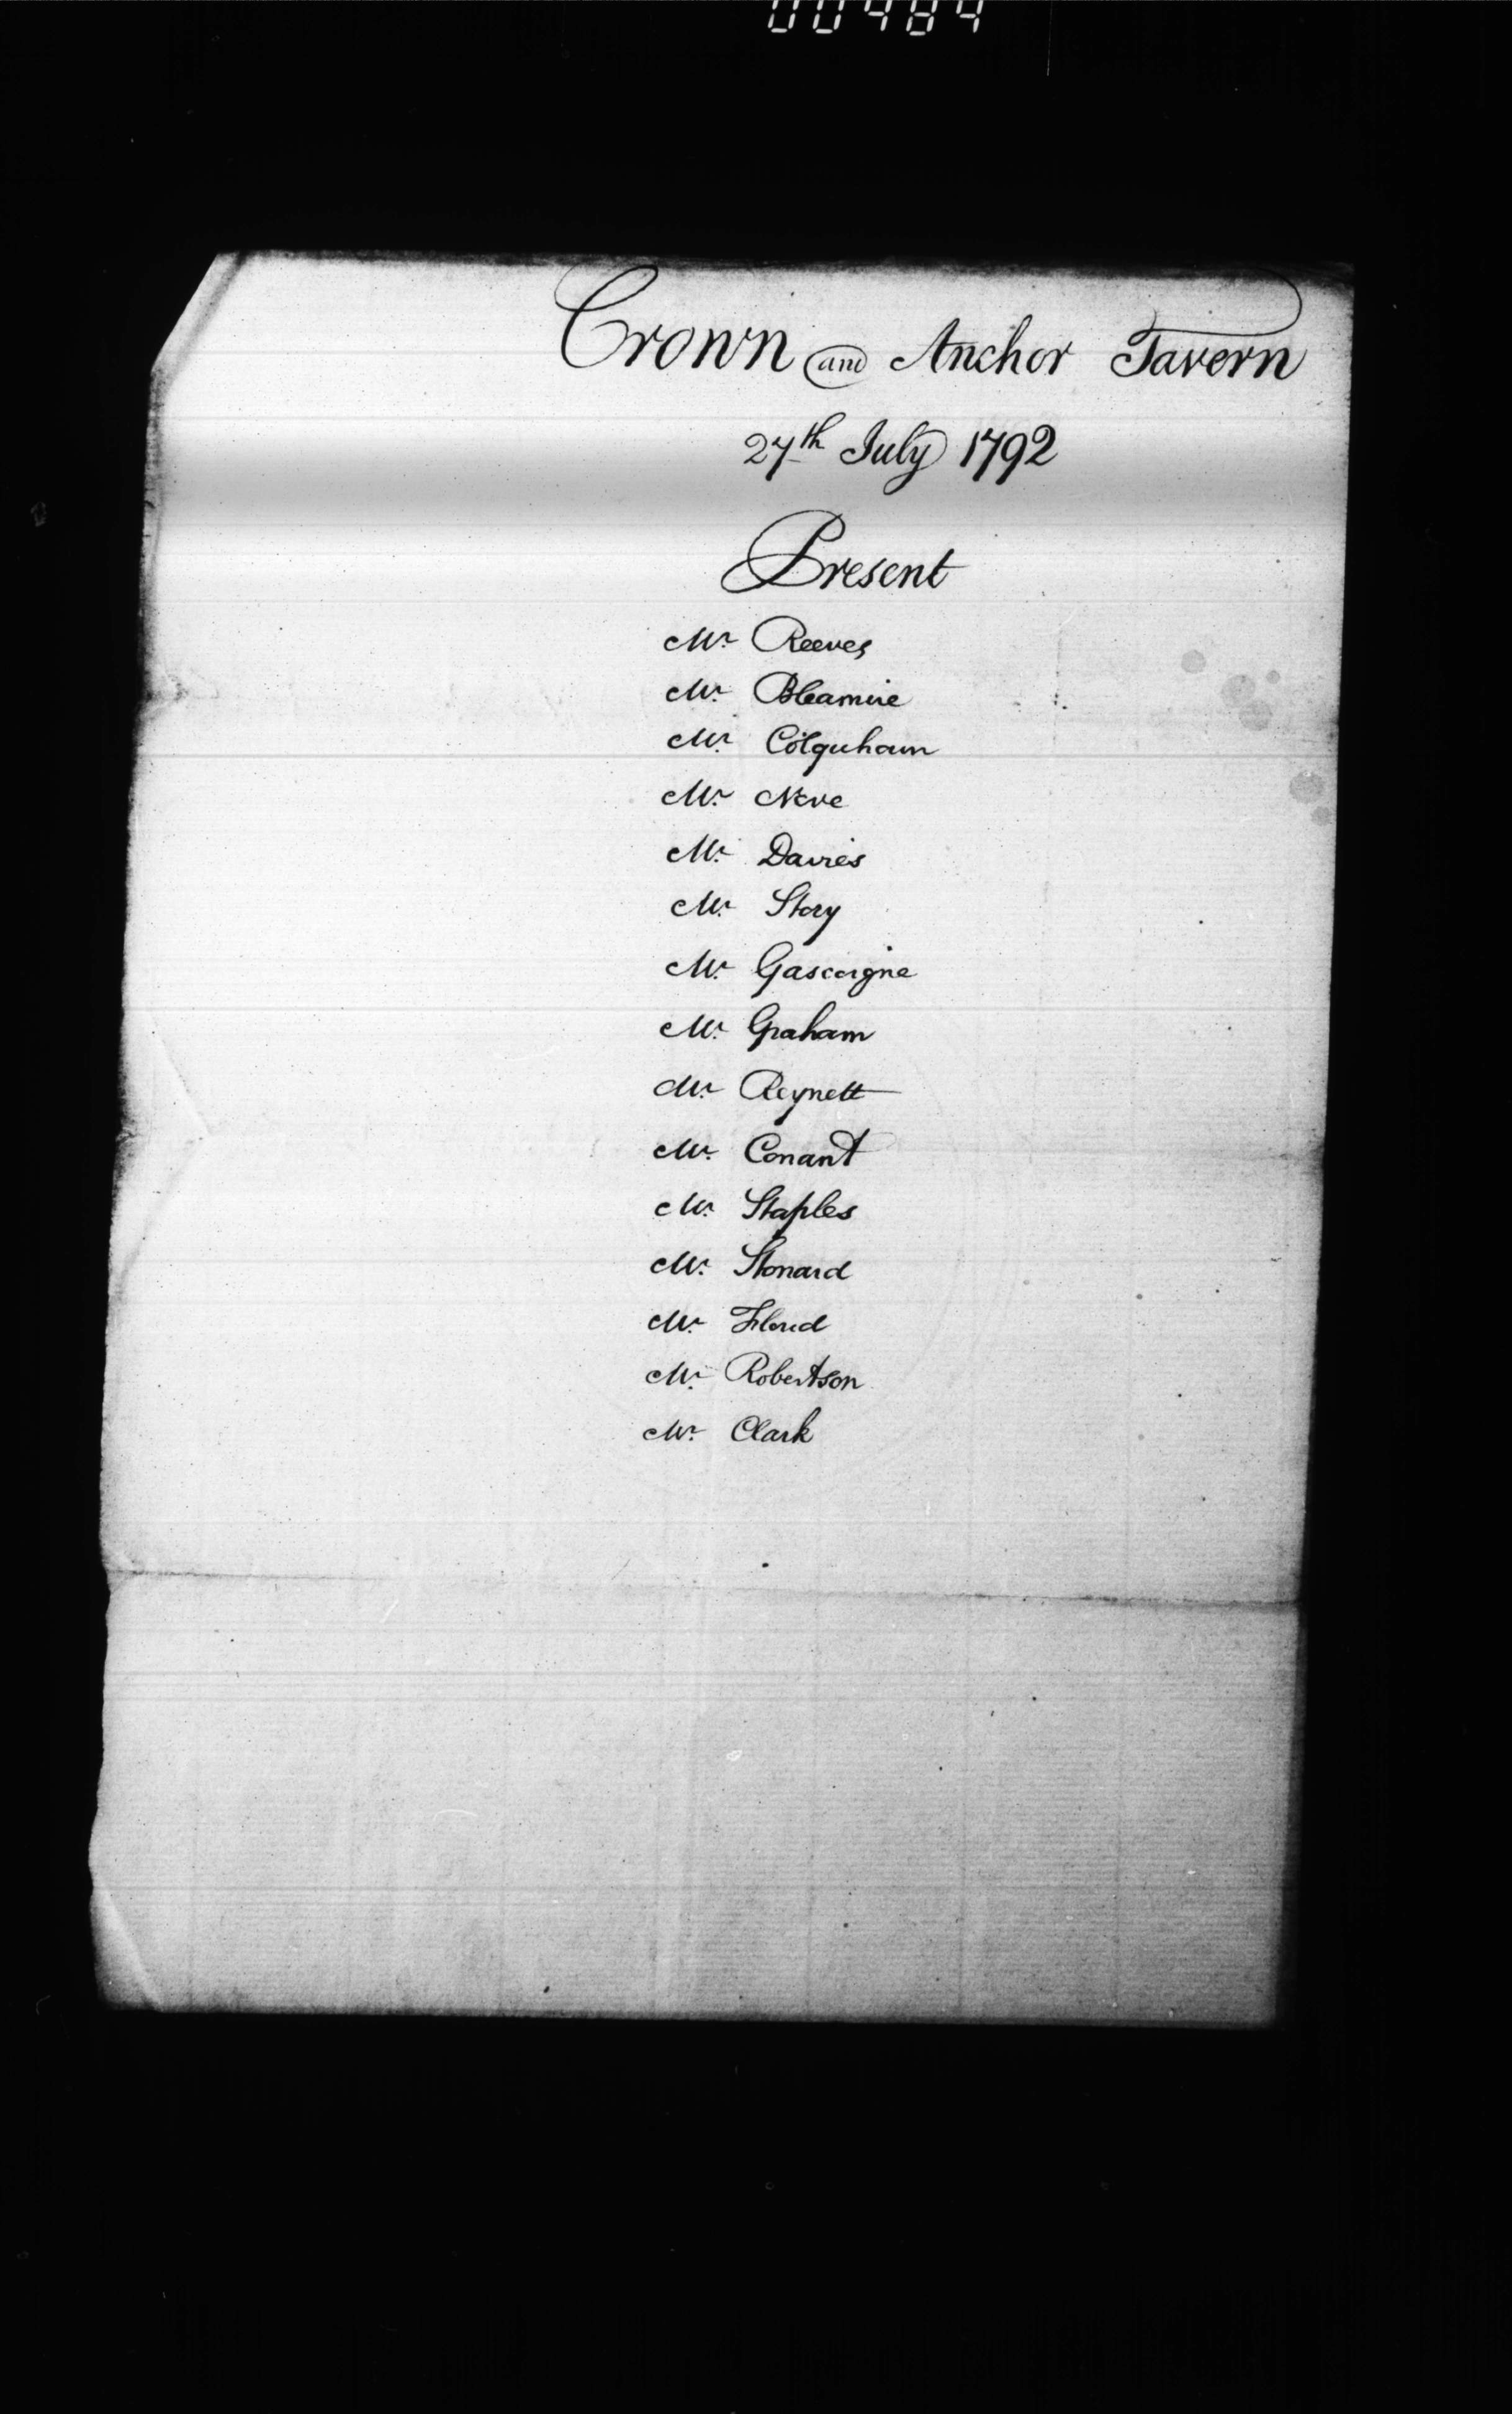 00484
Crown and Anchor Tavern
27th July 1792
Present
Mr. Reeves
Mr. Bleamire
Mr. Colquhoun
Mr. Neve
Mr. Davies
Mr. Story
Mr. Gascoigne
Mr. Graham
Mr. Reynett
Mr. Conant
Mr. Staples
Mr. Stonard
Mr. Floud
Mr. Robertson
Mr. Clark